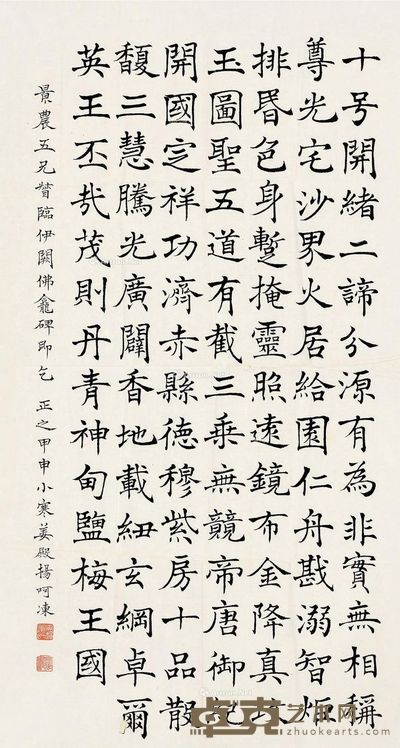 十号開緒二諦分源有為非實無相稱
尊光宅沙界火居給園仁舟戡溺智炬
排昏色身蹔掩靈照遠鏡布金降真
玉圖聖五道有截三乘無競帝唐御
開國定祥功濟赤縣德穆紫房十品散
馥三慧騰光廣闢香地載紐玄綱卓爾
英王丕哉茂則丹青神甸鹽梅王國
景農五兄督臨伊闕佛龕碑即乞 正之甲申小寒姜殿揚呵凍
卓克艺术网
zhuokearts.com